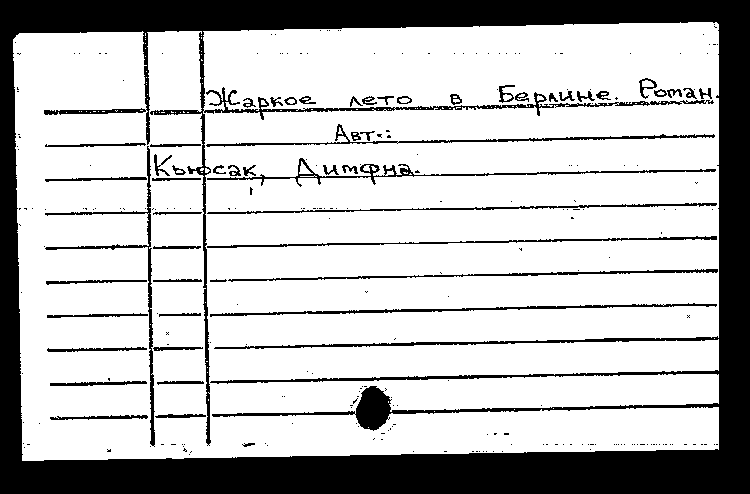 Жаркое лето в Берлине. Роман.
Авт.:
Кьюсак, Димфна.